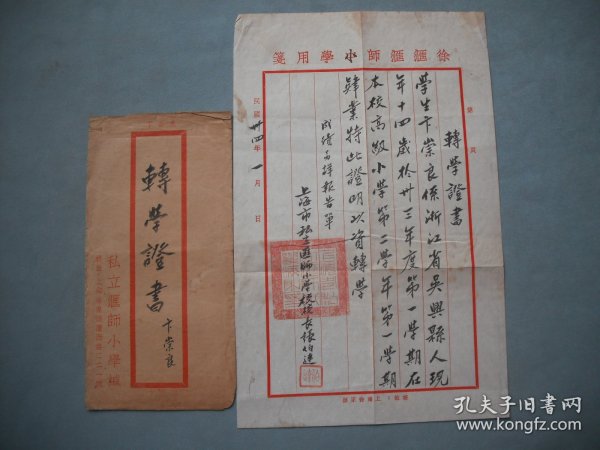 徐滙滙師小學用箋
第 頁
轉學證書
學生卞崇良係浙江省吳興縣人現
年十四歲於卅三年度第一學期在
本校高級小學第二學年第一學期
肄業特此證明以資轉學
成績另詳報告單
上海市私立匯師小學校校長張
民國卅四年一月 日
轉學證書
卞崇良
私立滙師小學緘
孔夫子旧书网
www.kongfz.com